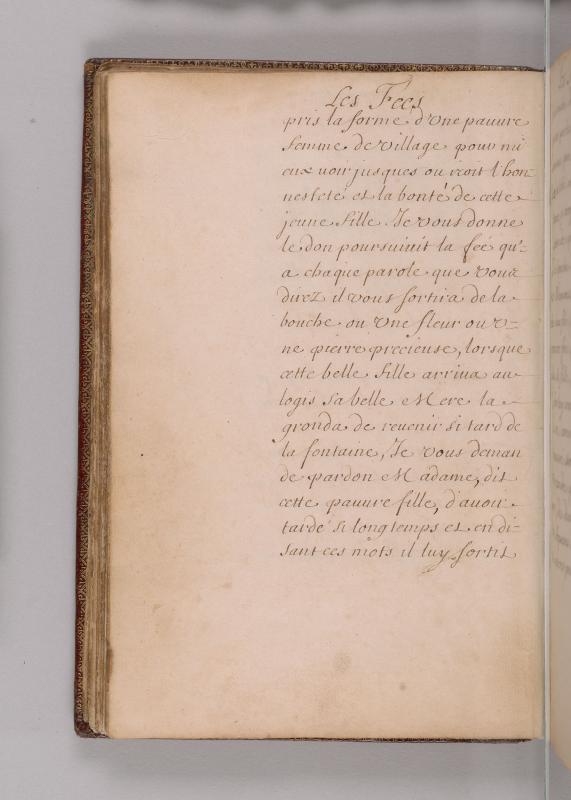 Les Fees
pris la forme d'Une pauvre
femme de Village pour mi
eux voir jusques ou iroit l'hon-
nesteté et la bonté de cette
jeune fille. Je vous donne
le don poursuivit la feé qu'-
a chaque parole que vous
direz il vous sortira de la
bouche ou Une fleur ou U-
ne pierre precieuse, lorsque
cette belle fille arriva au
logis sa belle Mere la
gronda de revenir si tard de
la fontaine, Je vous deman
de pardon Madame, dit
cette pauvre fille, d'avoir
tardé si longtemps et en di-
sant ces mots il luy sortit